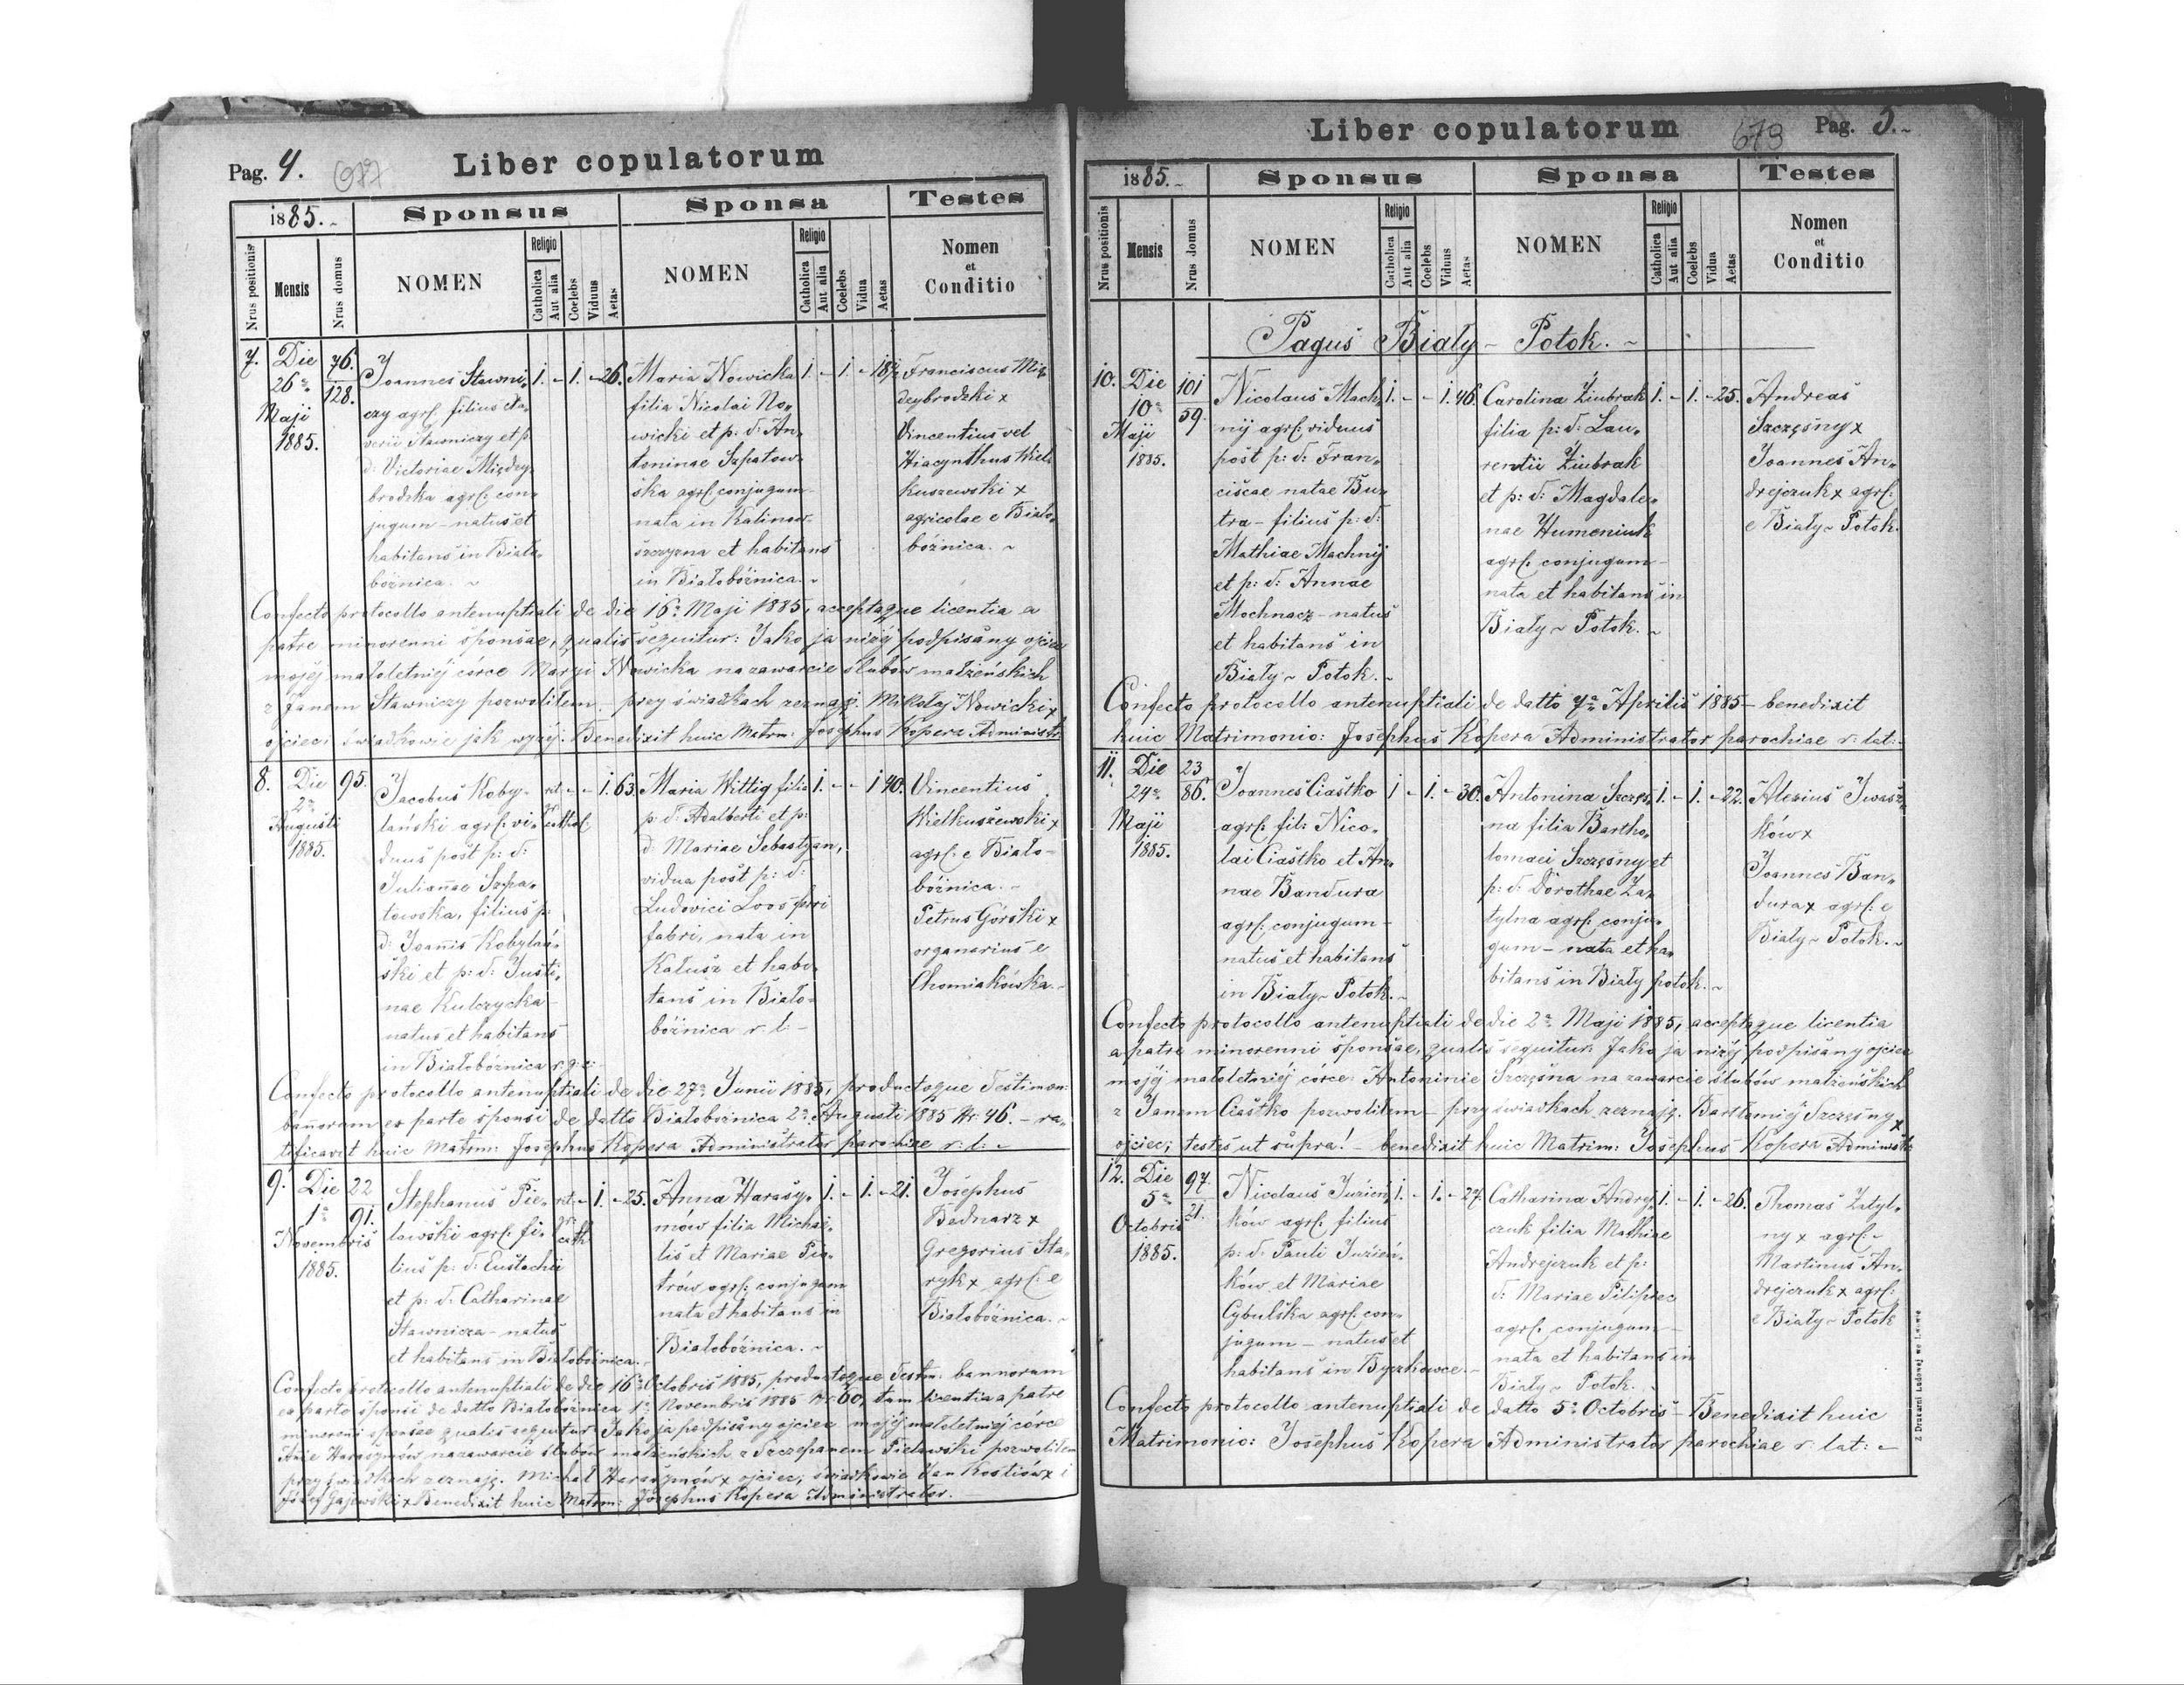 Pag. 4.
Liber copulatorum
1885.
Sponsus
Sponsa
Testes
Nrus positionis
Mensis
Nrus domus
NOMEN
Religio
Catholica
Aut alia
Coelebs
Viduus
Aetas
NOMEN
Religio
Catholica
Aut alia
Coelebs
Vidua
Aetas
Nomen
et
Conditio
7.
Die
26a
Maji
1885.
76.
128.
Joannes Stawni„
czy agrl. filius
verii Stawniczy et p:
d: Victoriae Między„
brodzka agrl: con„
jugum – natus et
habitans in Biało„
bóżnica. ~
1. – 1. – 26.
Maria Nowicka
filia Nicolai No„
wicki et p: d: An„
toninae Szpatow„
ska agrl. conjugum
nata in Kalinow„
szczyzna et habitans
in Białobóżnica. ~
1. – 1. –
Franciscus Mię„
dzybrodzki x
Vincentius vel
Hiacynthus Wiel„
kuszewski x
agricolae e Biało„
bóżnica. ~
Confecto protocollo antenuptiali de die 16a Maji 1885, acceptaque licentia a
patre minorenni sponsae, qualis sequitur: Jako ja niżéj podpisany ojciec
mojéj małoletniéj córce Maryi Nowicka na zawarcie ślubów małżeńskich
z Janem Stawniczy pozwoliłem – przy świadkach zeznaję. Mikołaj Nowicki x
ojciec; świadkowie jak wyżéj. Benedixit huic Matrm: Josephus Kopera Administr
8.
Die
2a
Augusti
1885.
95.
Jacobus Koby„
lański agrl. vi„
duus post p: d:
Julianae Szpa„
towska, filius p:
d: Joannis Kobylań„
ski et p: d: Justi„
nae Kulczycka –
natus et habitans
in Białobóżnica r. g. c.
rit.
gr.
cathol
– – 1. 63.
Maria Wittig filia
p: d: Adalberti et p:
d: Mariae Sebastyan,
vidua post p: d:
Ludovici Loos
fabri, nata in
Kałusz et habi„
tans in Biało„
bóżnica r. l: –
1. – – 1 40.
Vincentius
Wielkuszewski x
agrl: e Biało–
bóżnica. –
Petrus Górski x
organarius e
Chomiakówka. –
Confecto protocollo antenuptiali de die 27a Junii 1885, productoque Testimon:
bannorum ex parte sponsi de datto Białobóżnica 2a Augusti 1885 Nr. 46. – ra„
tificavit huic Matrm: Josephus Kopera Administrator parochiae r: l: ~
9.
Die
1a
Novembris
1885.
22
91.
Stephanus Pie„
lawski agrl. fi„
lius p: d: Eustachii
et p: d: Catharinae
Stawnicza – natus
et habitans in Białobóżnica.
rit.
gr.
cath.
– 1. – 25.
Anna Harasy„
mów filia Michae„
lis et Mariae Pio„
trów agrl. conjugum
nata et habitans in
Białobóżnica. ~
1. – 1. – 21.
Josephus
Bednarz x
Gregorius Sta„
ryk x agrl: e
Białobóżnica. ~
Confecto protocollo antenuptiali de die 16a Octobris 1885, productoque Testm: bannorum
ex parte sponsi de datto Białobóżnica 1a Novembris 1885 Nr. 60, tum licentia a patre
minorenni sponsae qualis sequitur Jako ja podpisany ojciec mojéj małoletniéj córce
Anie Harasymów na zawarcie ślubów małżeńskich z Szczepanem Pielawski pozwoliłem
przy świadkach zeznaję. Michał Harasymów x ojciec, świadkowie Jan Kostiów x i
Józef Gajewski x Benedixit huic Matrm: Josephus Kopera Administrator.
Liber copulatorum
679
Pag. 5.
1885.
Sponsus
Sponsa
Testes
Nrus positionis
Mensis
Nrus domus
NOMEN
Religio
Catholica
Aut alia
Coelebs
Viduus
Aetas
NOMEN
Religio
Catholica
Aut alia
Coelebs
Vidua
Aetas
Nomen
et
Conditio
Pagus Biały – Potok. ~
10.
Die
10a
Maji
1885.
101
59.
Nicolaus Mach„
nij agrl: viduus
post p: d: Fran„
ciscae natae Bu„
tra – filius p: d:
Mathiae Machnij
et p: d: Annae
Mochnacz – natus
et habitans in
Biały – Potok. ~
1. – – 1. 46.
Carolina Ziubrak
filia p: d: Lau„
rentii Ziubrak
et p: d: Magdale„
nae Humeniuk
agrl. conjugum –
nata et habitans in
Biały – Potok. ~
1. – 1. – 25.
Andreas
Szczęsny x
Joannes An„
drejczuk x agrl:
e Biały – Potok.
Confecto protocollo antenuptiali de datto 7a Aprilis 1885 – benedixit
huic Matrimonio: Josephus Kopera Administrator parochiae r: lat: –
11.
Die
24a
Maji
1885.
23
86.
Joannes Ciastko
agrl: fil: Nico„
lai Ciastko et An„
nae Bandura
agrl. conjugum –
natus et habitans
in Biały – Potok. ~
1 – 1. – 30.
Antonina Szczęs„
na filia Bartho„
lomaei Szczęsny et
p: d: Dorothae Za„
tylna agrl. conju„
gum – nata et ha„
bitans in Biały potok. ~
1. – 1. – 22.
Alexius Iwasz„
ków x
Joannes Ban„
dura x agrl: e
Biały – Potok. ~
Confecto protocollo antenuptiali de die 2a Maji 1885, acceptaque licentia
a patre minorenni sponsae, qualis sequitur: Jako ja niżéj podpisany ojciec
mojéj małoletniéj córce Antoninie Szczęsna na zawarcie ślubów małżeńskich
z Janem Ciastko pozwoliłem – przy świadkach zeznaję. Bartłomiéj Szczęsny x
ojciec; testes ut supra! – benedixit huic Matrim: Josephus Kopera Administr
12.
Die
5a
Octobris
1885.
97.
21.
Nicolaus Juzień„
ków agrl. filius
p: d: Pauli Juzień„
ków et Mariae
Cybulska agrl. con„
jugum – natus et
habitans in Byczkowce. –
1. – 1. – 27.
Catharina Andrej„
czuk filia Mathiae
Andrejczuk et p:
d: Mariae Pilipiec
agrl. conjugum –
nata et habitans in
Biały – Potok. ~
1. – 1. – 26.
Thomas Zatyl„
ny x agrl: –
Martinus An„
drejczuk x agrl:
e Biały – Potok
Confecto protocollo antenuptiali de datto 5a Octobris – Benedixit huic
Matrimonio: Josephus Kopera Administrator parochiae r: lat: –
Z Drukarni Ludowej we Lwowie